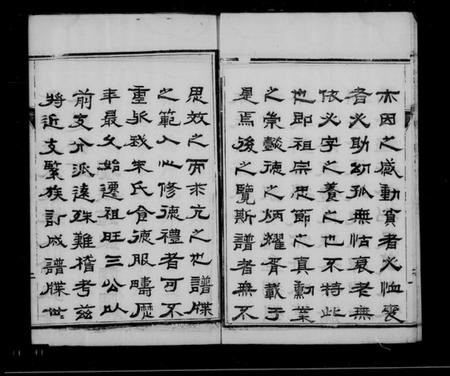 亦因之感動貧者必恤喪
者必助幼孤無怙衰老無
依必字之養之也不特此
也即祖宗忠節之真勳業
之崇懿德之炳耀胥載于
是焉後之覽斯譜者無不
思效之而求充之也譜牒
之範人心修德禮者可不
重哉我朱氏食德服疇歷
年最久始遷祖旺三公以
前支分派遠殊難稽考茲
將近支緊族訂成譜牒世